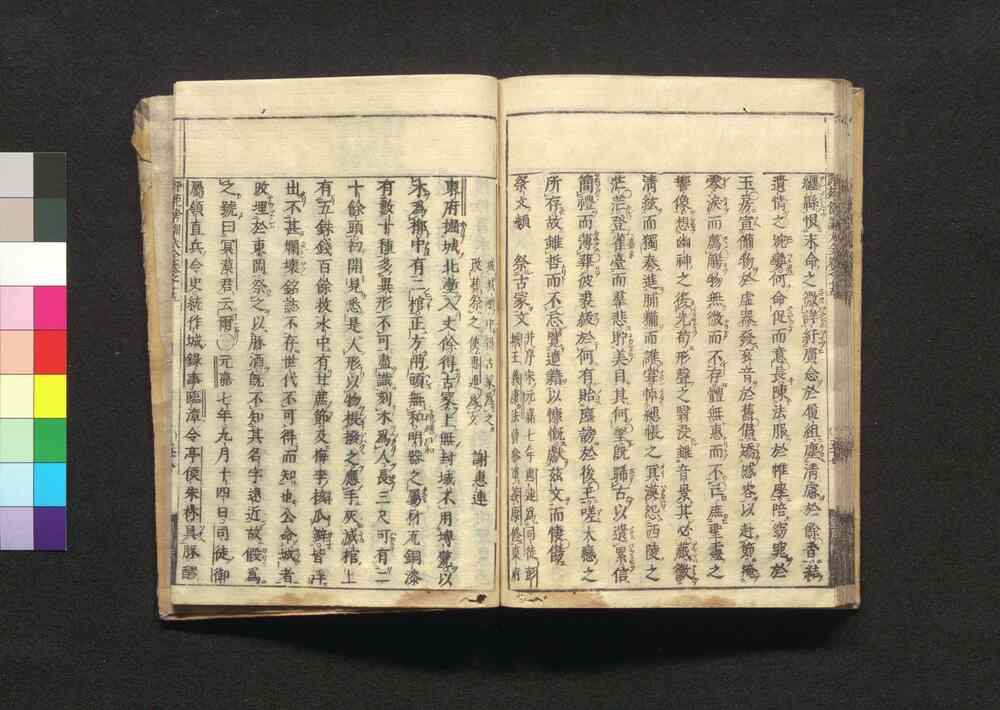 纒緜恨末命之微詳紆廣念於履組塵清慮於餘香結
遺情之婉孌何命促而意長陳法服於帷座陪窈窕於
玉房宣備物於虛器發哀音於舊倡矯慼容以赴節掩
零淚而薦觴物無微而不存體無惠而不亡庶聖靈之
響像想幽神之復光苟形聲之翳沒雖音景其必藏徽
清絃而獨奏進脯糒而誰嘗悼繐帳之冥漠怨西陵之
茫茫登雀臺而羣悲眝美目其何望既睎古以遺累信
簡禮而薄葬彼裘紱於何有貽塵謗於後王嗟大戀之
所存故雖哲而不忘覽遺籍以慷慨獻茲文而悽傷
祭文類 祭古冢文 并序
宋元嘉七年惠連為司徒彭
城王義康法曹參軍
義康修東府
改葬祭之使惠連為文
謝惠連
東府掘城北塹入丈餘得古冢上無封域不用塼甓以
木為椁中有二棺正方兩頭無和明器之屬材瓦銅漆
有數十種多異形不可盡識刻木為人長三尺可有二
十餘頭初開見悉是人形以物棖撥之應手灰滅棺上
有五銖錢百餘枚水中有甘蔗節及梅李核瓜瓣皆浮
出不甚爛壞銘誌不存世代不可得而知也公命城者
改埋於東岡祭之以豚酒既不知其名字遠近故假為
之號曰冥漠君云爾〇元嘉七年九月十四日司徒御
屬領直兵令史統作城錄事臨漳令亭侯朱林具豚醪